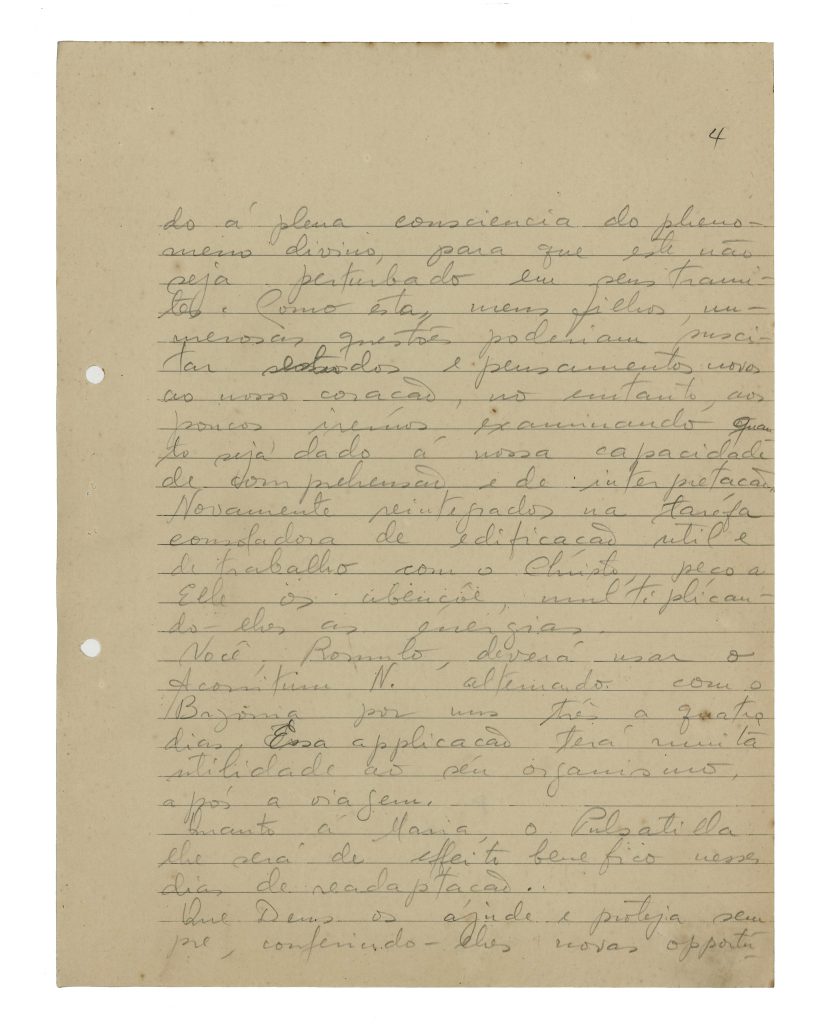 4
do á plena consciencia do pheno-
meno divino, para que este não
seja perturbado em seus trami-
tes. Como esta, meus filhos, nu-
merosas questões poderiam susci-
tar estudos e pensamentos novos
ao nosso coração, no emtanto, aos
poucos iremos examinando quan
to seja dado á nossa capacidade
de comprehensão e de interpretação.
Novamente reintegrados na tarefa
consoladora de edificação util e
de trabalho com o Christo, peço a
Elle os abençôe, multiplican-
do-lhes as energias.
Você, Romulo, deverá usar o
Aconitum N. alternado com o
por uns três a quatro
dias. Essa applicação terá muita
utilidade ao seu organismo,
após a viagem.
Quanto á Maria, o Pulsatilla
lhe será de effeito benefico nesses
dias de readaptação..
Que Deus os ajude e proteja sem
pre, conferindo-lhes novas opportu-